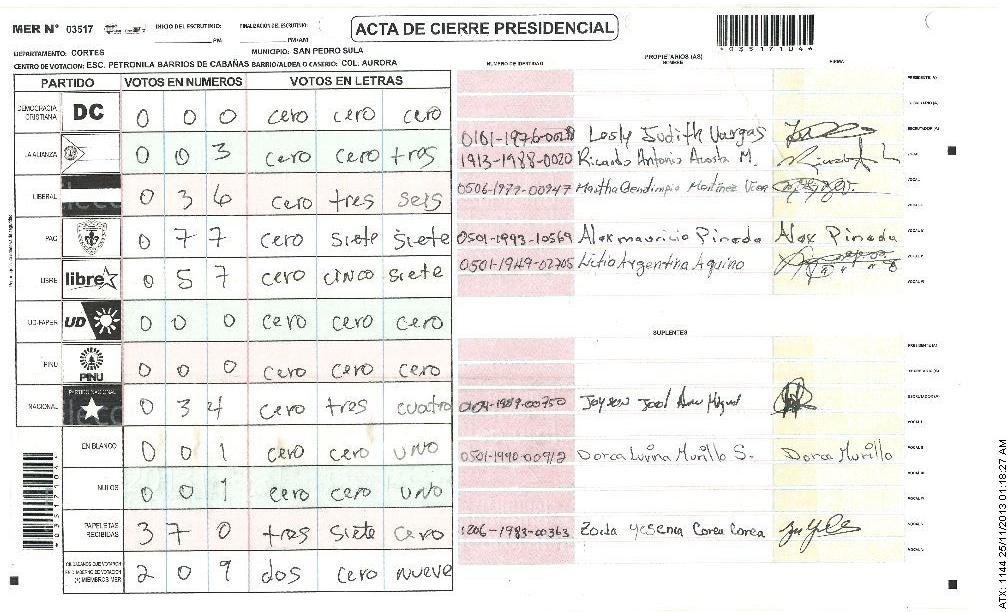 MER N° 03517 INICIO DEL ESCRUTINIO: FINALIZACION DEL ESCRUTINIO: ACTA DE CIERRE PRESIDENCIAL
PM PM/AM
DEPARTAMENTO: CORTES MUNICIPIO: SAN PEDRO SULA
CENTRO DE VOTACION: ESC. PETRONILA BARRIOS DE CABAÑAS BARRIO/ALDEA O CASERIO: COL. AURORA
*035171044*
PARTIDO VOTOS EN NUMEROS VOTOS EN LETRAS
DEMOCRACIA CRISTIANA DC 0 0 0 cero cero cero
LA ALIANZA 0 0 3 cero cero tres
LIBERAL 0 3 6 cero tres seis
PAC 0 7 7 cero siete siete
LIBRE libre 0 5 7 cero cinco siete
UD-FAPER UD 0 0 0 cero cero cero
PINU PINU 0 0 0 cero cero cero
NACIONAL PARTIDO NACIONAL 0 3 4 cero tres cuatro
EN BLANCO 0 0 1 cero cero uno
NULOS 0 0 1 cero cero uno
PAPELETAS RECIBIDAS 3 7 0 tres siete cero
CIUDADANOS QUE VOTARON EN CUADERNO DE VOTACION (+) MIEMBROS MER 2 0 9 dos cero nueve
NUMERO DE IDENTIDAD PROPIETARIOS (AS) NOMBRE FIRMA
PRESIDENTE (A)
SECRETARIO (A)
ESCRUTADOR (A)
Lesly Judith Vargas
1913-1988-0020 Ricardo Antonio Acosta M.
VOCAL I
Martinez
VOCAL II
0501-1993-10569 Alex mauricio Pineda Alex Pineda
0501-1949-02705 Argentina Aquino
SUPLENTES
PRESIDENTE (A)
SECRETARIO (A)
ESCRUTADOR (A)
Joel
0501-1990-00912 Dorca Murillo S. Dorca Murillo
1206-1983-00363 Zoila Yesenia Corea Corea
ATX: 1144 25/11/2013 01:18:27 AM